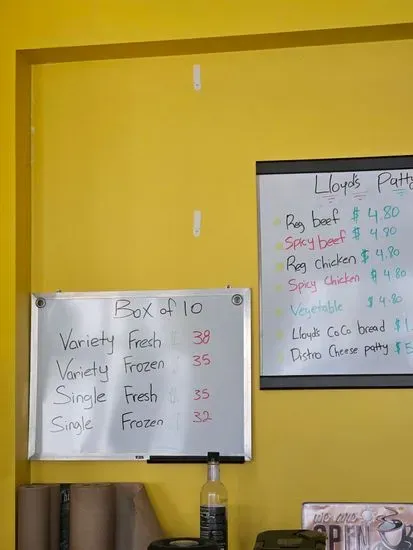 Lloyd's Patty
Reg beef $ 4.80
Spicy beef $ 4.80
Reg Chicken $ 4.80
Spicy Chicken $ 4.80
Vegetable $ 4.80
Lloyd's CoCo bread $
Distro Cheese patty $ 5
Box of 10
Variety Fresh 38
Variety Frozen 35
Single Fresh 35
Single Frozen 32
we are
OPEN